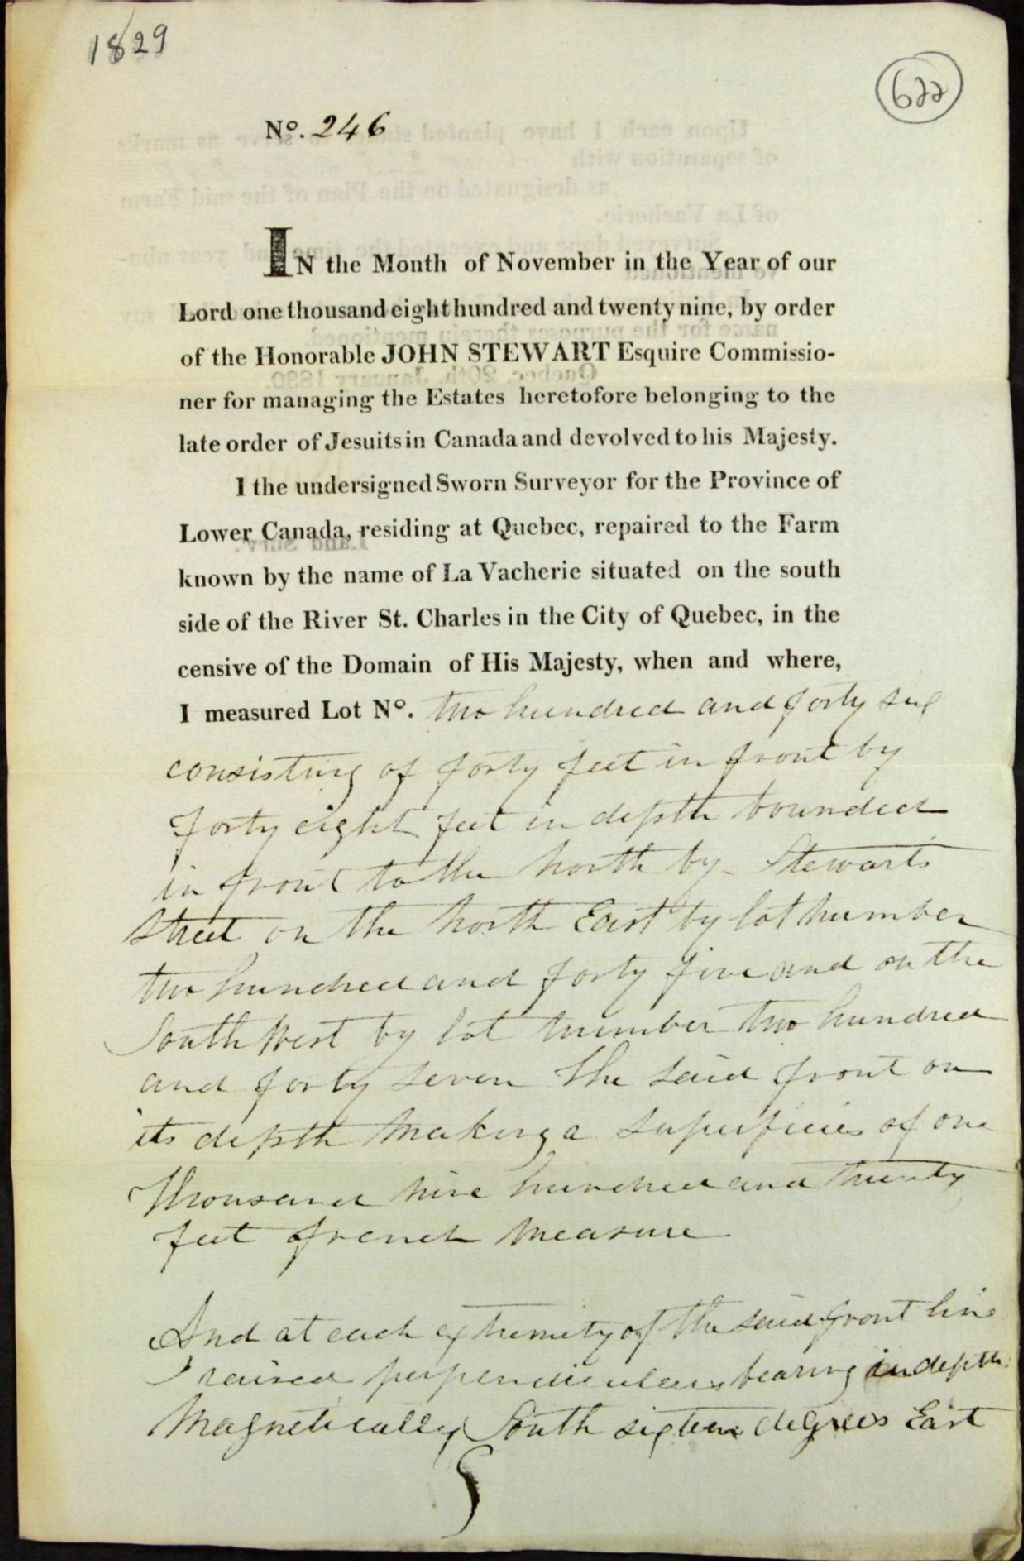 1829
622
No. 246
IN the Month of November in the Year of our
Lord one thousand eight hundred and twenty nine, by order
of the Honorable JOHN STEWART Esquire Commissio-
ner for managing the Estates heretofore belonging to the
late order of Jesuits in Canada and devolved to his Majesty.
I the undersigned Sworn Surveyor for the Province of
Lower Canada, residing at Quebec, repaired to the Farm
known by the name of La Vacherie situated on the south
side of the River St. Charles in the City of Quebec, in the
censive of the Domain of His Majesty, when and where,
I measured Lot No. two hundred and forty six
consisting of forty feet in front by
forty eight feet in depth bounded
in front to the North by Stewarts
Street on the North East by lot number
two hundred and forty five and on the
South West by lot number two hundred
and forty seven the said front on
its depth making a superficies of one
thousand nine hundred and twenty
feet french measure
And at each extremity of the said front line
I raised perpendiculars bearing in depth
Magnetically South sixteen degrees East